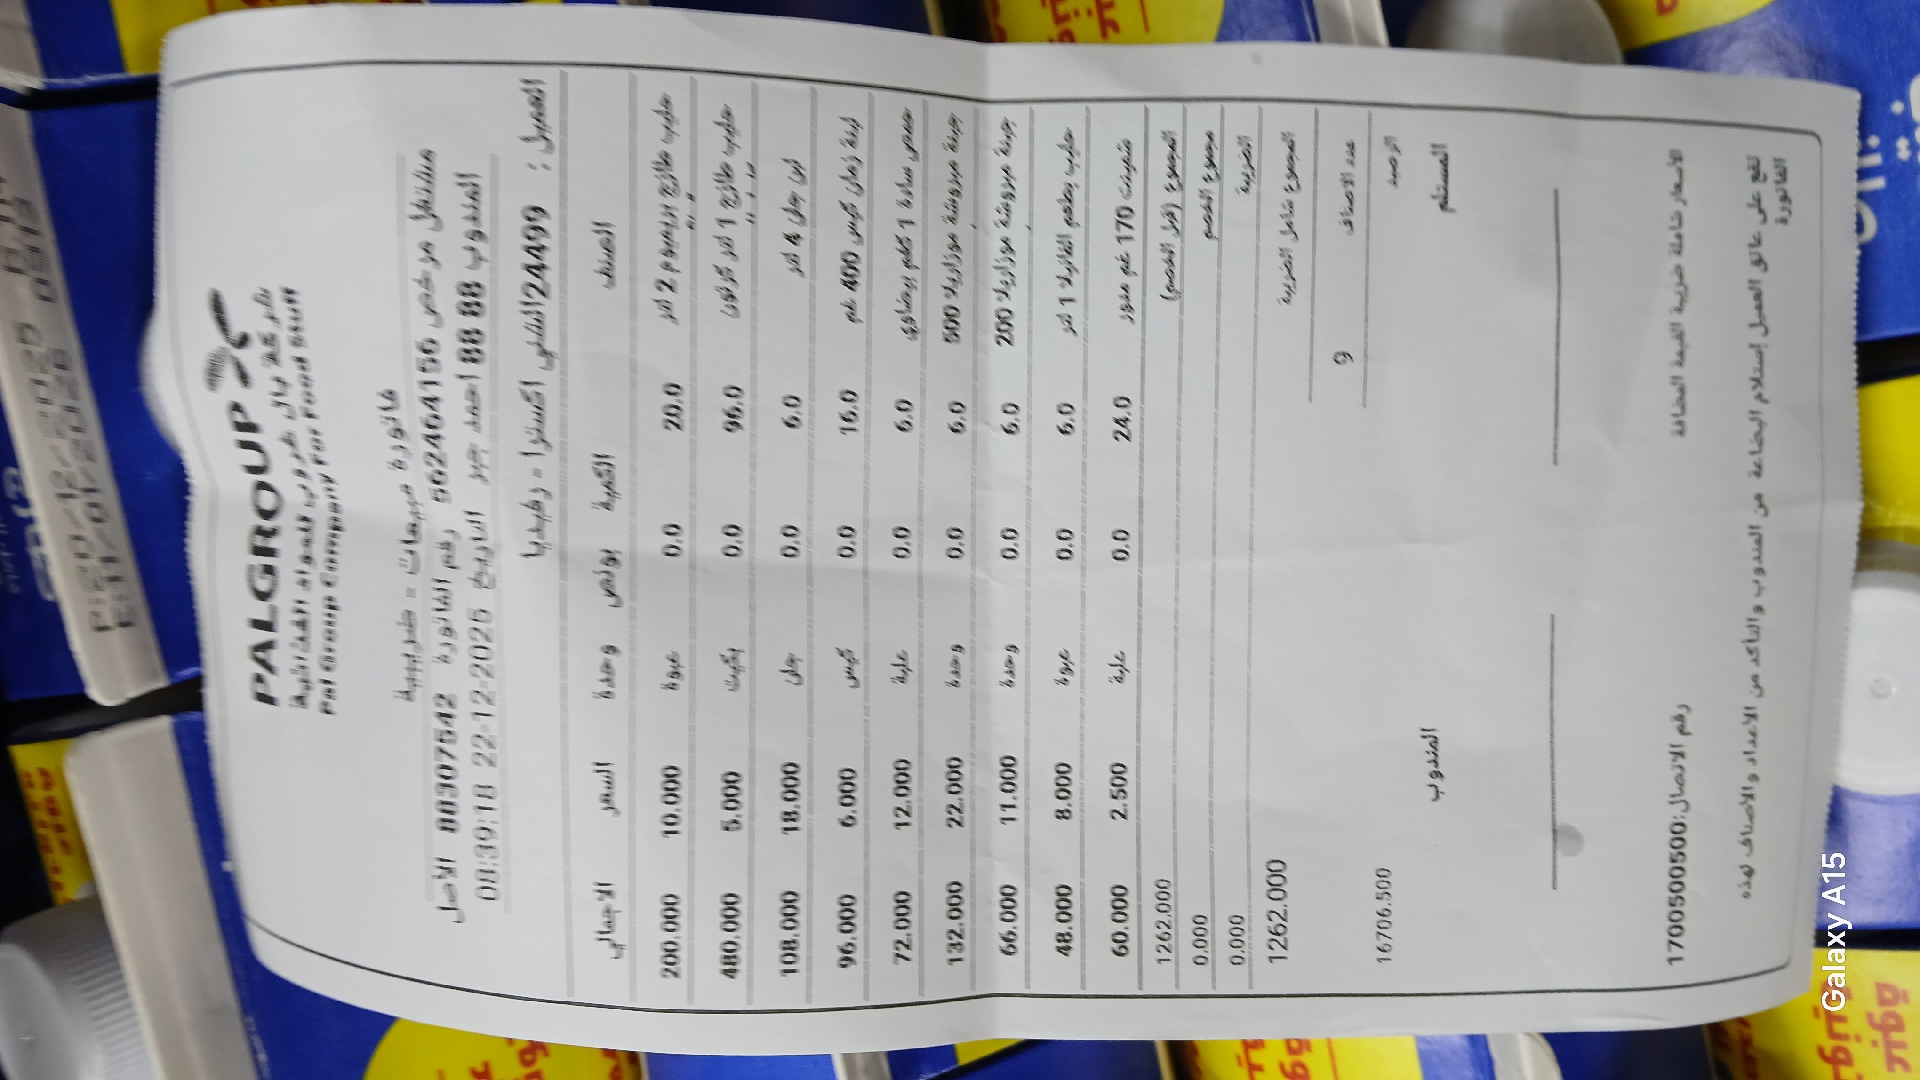 PALGROUP
شركة بال جروب للمواد الغذائية
Pal Group Company For Food Stuff
فاتورة مبيعات - ضريبية
مشتغل مرخص 562464156 رقم الفاتورة 88307542 الأصل
المندوب 88 88 احمد جبر التاريخ 22-12-2025 08:39:18
العميل : 24499 اكسترا - رفيديا
الصنف الكمية بونص وحدة السعر الاجمالي
حليب طازج بريميوم 2 لتر 20.0 0.0 عبوة 10.000 200.000
حليب طازج 1 لتر كرتون 96.0 0.0 بكيت 5.000 480.000
لبن جلن 4 لتر 6.0 0.0 جلن 18.000 108.000
لبنة زمان كيس 400 غم 16.0 0.0 كيس 6.000 96.000
حمص سادة 1 كغم بيضاوي 6.0 0.0 علبة 12.000 72.000
جبنة مبروشة موزاريلا 500 6.0 0.0 وحدة 22.000 132.000
جبنة مبروشة موزاريلا 200 6.0 0.0 وحدة 11.000 66.000
حليب بطعم الفانيلا 1 لتر 6.0 0.0 عبوة 8.000 48.000
شمينت 170 غم مدور 24.0 0.0 علبة 2.500 60.000
المجموع (قبل الخصم) 1262.000
مجموع الخصم 0.000
الضريبة 0.000
المجموع شامل الضريبة 1262.000
عدد الاصناف 9
الرصيد 16706.500
المستلم المندوب
الأسعار شاملة ضريبة القيمة المضافة رقم الاتصال:1700500500
تقع على عاتق العميل إستلام البضاعة من المندوب والتأكد من الاعداد والأصناف لهذه
الفاتورة
Galaxy A15